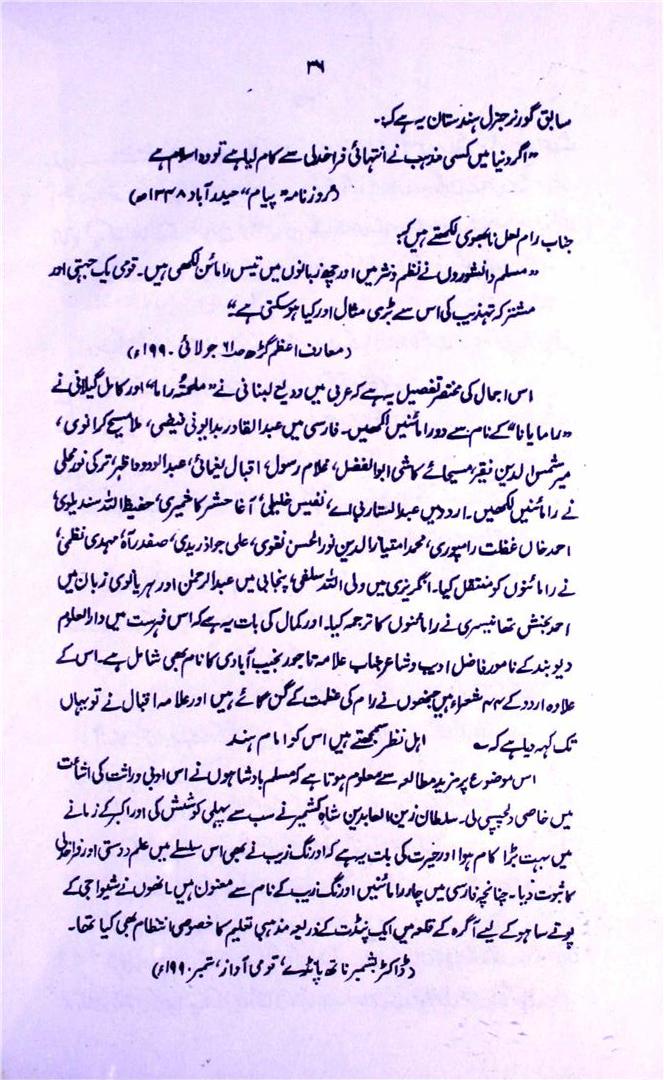 ۳۶
سابق گورنر جنرل ہندستان یہ ہے کہ:۔
”اگر دنیا میں کسی مذہب نے انتہائی فراخدلی سے کام لیا ہے تو وہ اسلام ہے
(روزنامہ ”پیام“ حیدرآباد ۱۳۳۸ھ)
جناب رام لعل نابھوی لکھتے ہیں کہ:
”مسلم دانشوروں نے نظم و نثر میں اور چھ زبانوں میں تیس رامائن لکھی ہیں۔ قومی یک جہتی اور
مشترکہ تہذیب کی اس سے بڑی مثال اور کیا ہو سکتی ہے“
(معارف اعظم گڑھ جولائی ۱۹۹۰ء)
اس اجمال کی مختصر تفصیل یہ ہے کہ عربی میں ودیع لبنانی نے ”ملحمۃ راما“ اور کامل گیلانی نے
”رامایانا“ کے نام سے دو رامائنیں لکھیں۔ فارسی میں عبدالقادر بدایونی فیضی، ملا مسیح کرانوی،
میر شمس الدین فقیر، مسیحائے کاشی ابوالفضل، غلام رسول، اقبال یغمائی، عبدالودود اظہر، ترکی نور محلی
نے رامائنیں لکھیں۔ اردو میں عبدالستار بی اے، نفیس خلیلی، آغا حشر کاشمیری، حفیظ اللہ سندیلوی،
احمد خاں غفلت رامپوری، محمد امتیاز الدین نورالحسن نقوی، علی جواد زیدی، صفدر آہ، مہدی نظمی
نے رامائنوں کو منتقل کیا۔ انگریزی میں ولی اللہ سلفی، پنجابی میں عبدالرحمٰن اور ہریانوی زبان میں
احمد بخش تھانیسری نے رامائنوں کا ترجمہ کیا۔ اور کمال کی بات یہ ہے کہ اس فہرست میں دارالعلوم
دیوبند کے نامور فاضل ادیب و شاعر جناب علامہ تاجور نجیب آبادی کا نام بھی شامل ہے۔ اس کے
علاوہ اردو کے ۴۴ شعراء ہیں جنھوں نے رام کی عظمت کے گن گائے ہیں اور علامہ اقبال نے تو یہاں
تک کہہ دیا ہے کہ ؎ اہل نظر سمجھتے ہیں اس کو امام ہند
اس موضوع پر مزید مطالعہ سے معلوم ہوتا ہے کہ مسلم بادشاہوں نے اس ادبی وراثت کی اشاعت
میں خاصی دلچسپی لی۔ سلطان زین العابدین شاہ کشمیر نے سب سے پہلی کوشش کی اور اکبر کے زمانے
میں بہت بڑا کام ہوا اور حیرت کی بات یہ ہے کہ اورنگ زیب نے بھی اس سلسلے میں علم دوستی اور فراخدلی
کا ثبوت دیا۔ چنانچہ فارسی میں چار رامائنیں اورنگ زیب کے نام سے معنون ہیں انھوں نے شیواجی کے
پوتے ساہو کے لیے آگرہ کے قلعہ میں ایک پنڈت کے ذریعہ مذہبی تعلیم کا خصوصی انتظام بھی کیا تھا۔
(ڈاکٹر بشمبر ناتھ پانڈے، قومی آواز، ستمبر ۱۹۹۰ء)